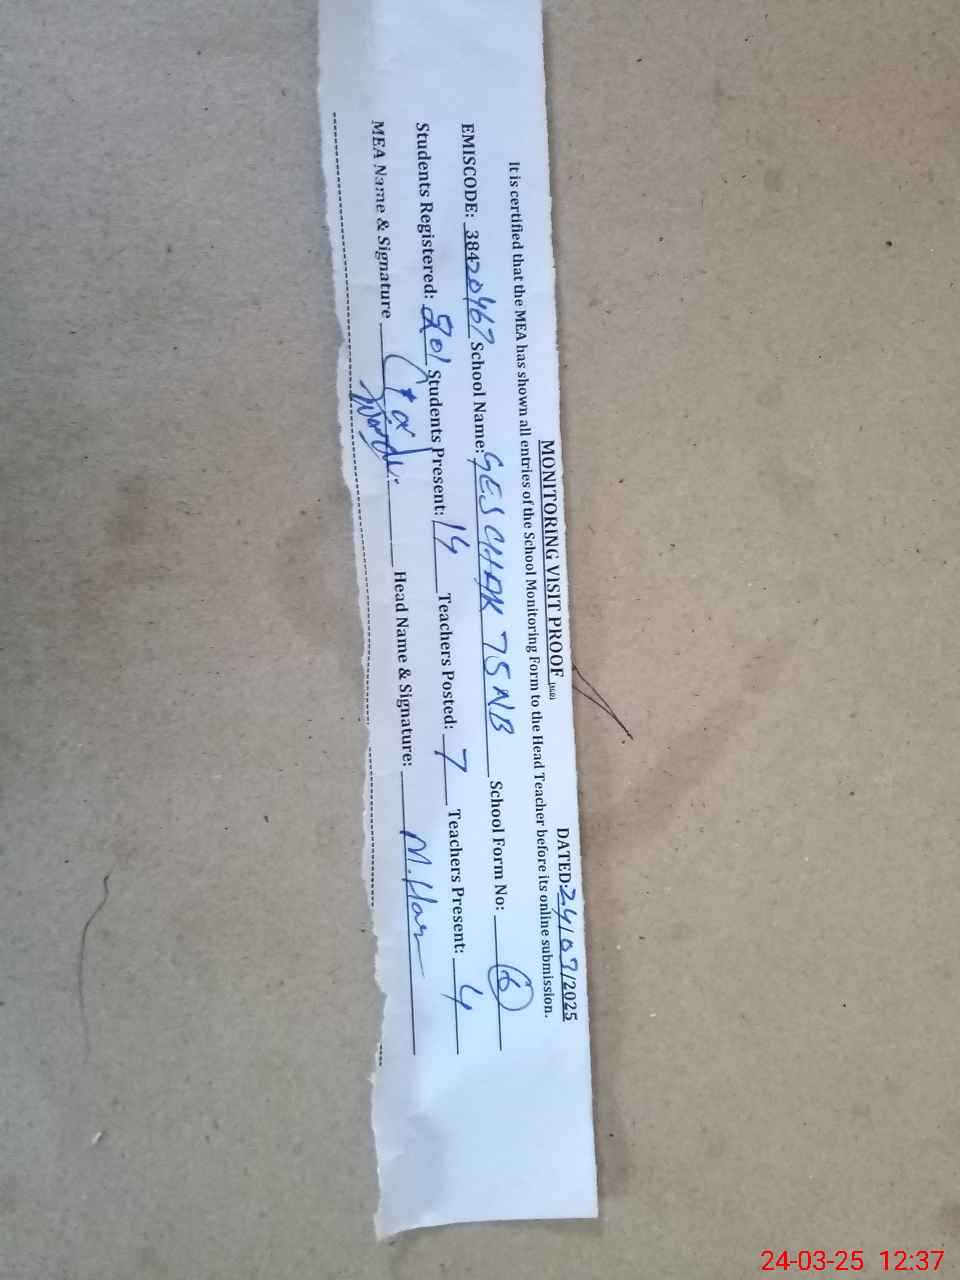 MONITORING VISIT PROOF DATED: 24/03/2025
It is certified that the MEA has shown all entries of the School Monitoring Form to the Head Teacher before its online submission.
EMISCODE: 38420467 School Name: GES CHAK 75NB School Form No: 6
Students Registered: 201 Students Present: 14 Teachers Posted: 7 Teachers Present: 4
MEA Name & Signature Head Name & Signature: M.
24-03-25 12:37